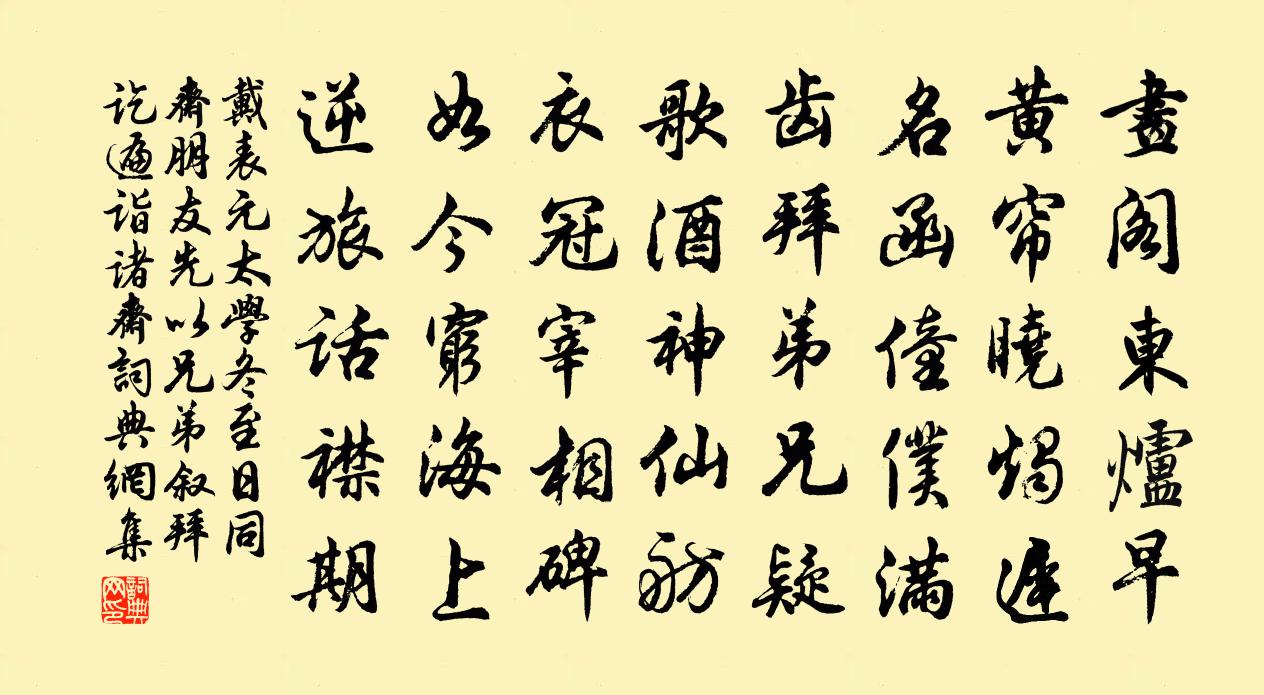 畫閣東爐早
黄帘曉燭遲
名函僮僕滿
齿拜弟兄疑
歌酒神仙舫
衣冠宰相碑
如今窮海上
逆旅話襟期
戴表元太學冬至日同
齋朋友先以兄弟叙拜
訖遍詣諸齋詞典網集
詞典网印